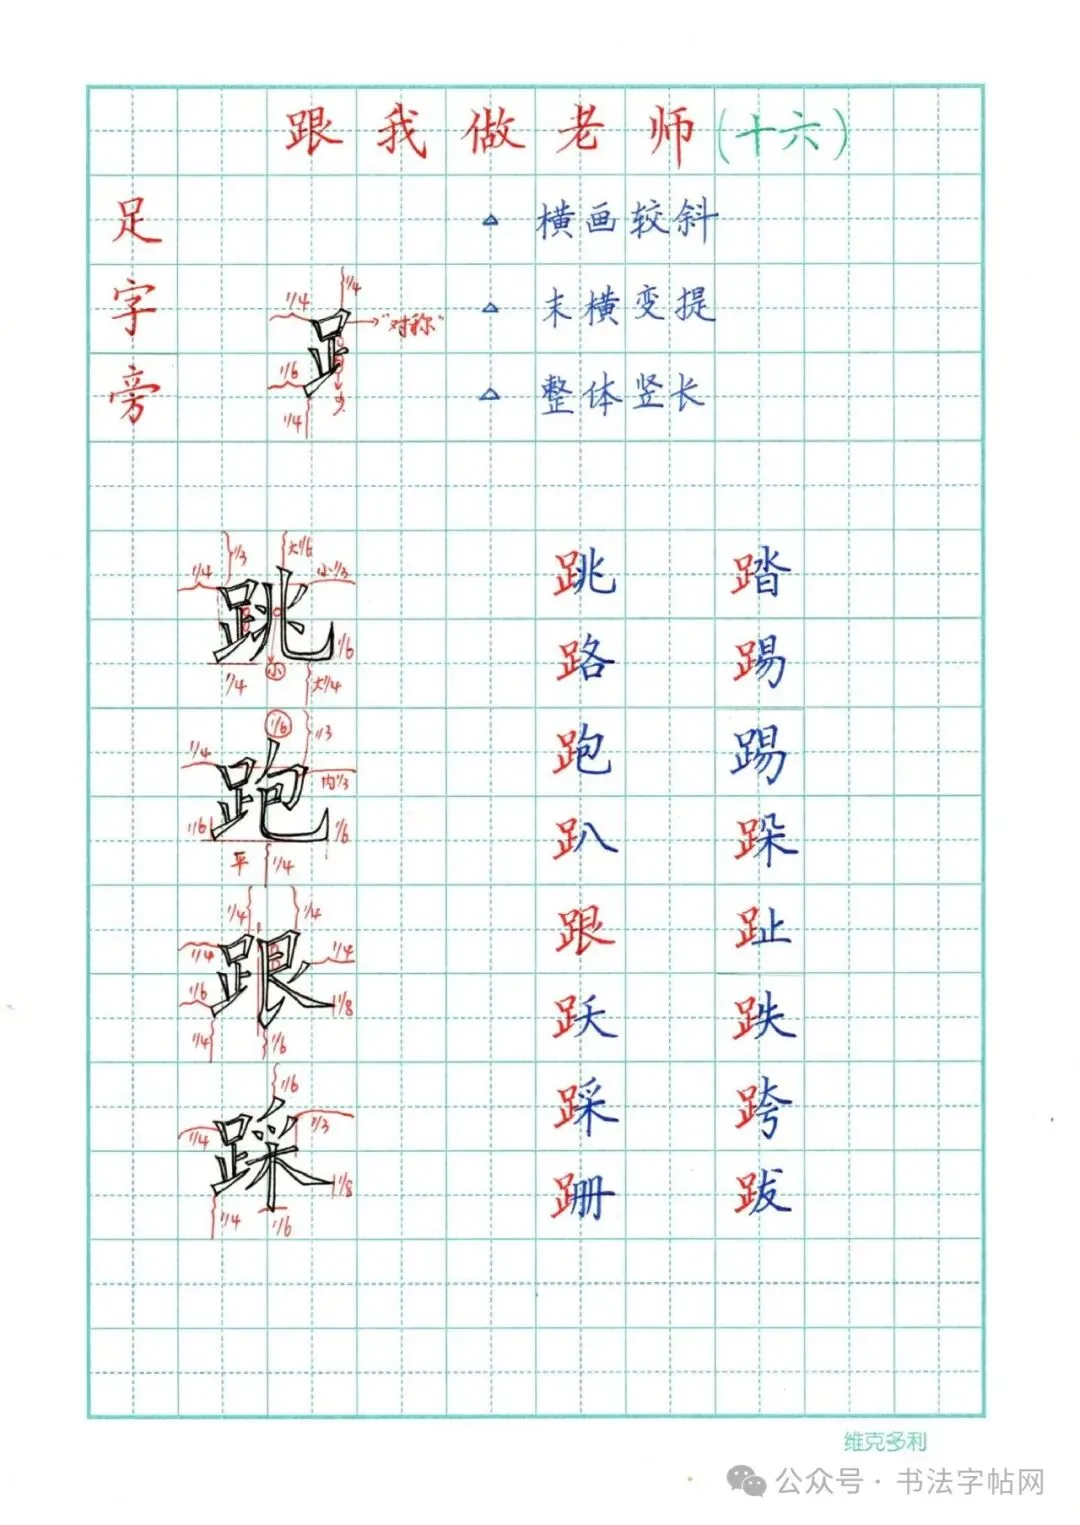 跟我做老师(十六)
足字旁
△ 横画较斜
△ 末横变提
△ 整体竖长
1/4 1/4
"对称"
1/6
1/4
1/3 大1/6
1/4 小1/3
跳
1/6
1/4 小 大1/4
跳 踏
路 踢
1/6 1/3
1/4
内1/3
跑
1/6 1/6
平 1/4
跑 踢
趴 跺
1/4 1/4
1/4 1/4
跟
1/6 1/8
1/4 1/6
跟 趾
跃 跌
1/6
1/4 1/3
踩
1/8
1/4 1/6
踩 跨
跚 跋
维克多利
公众号·书法字帖网